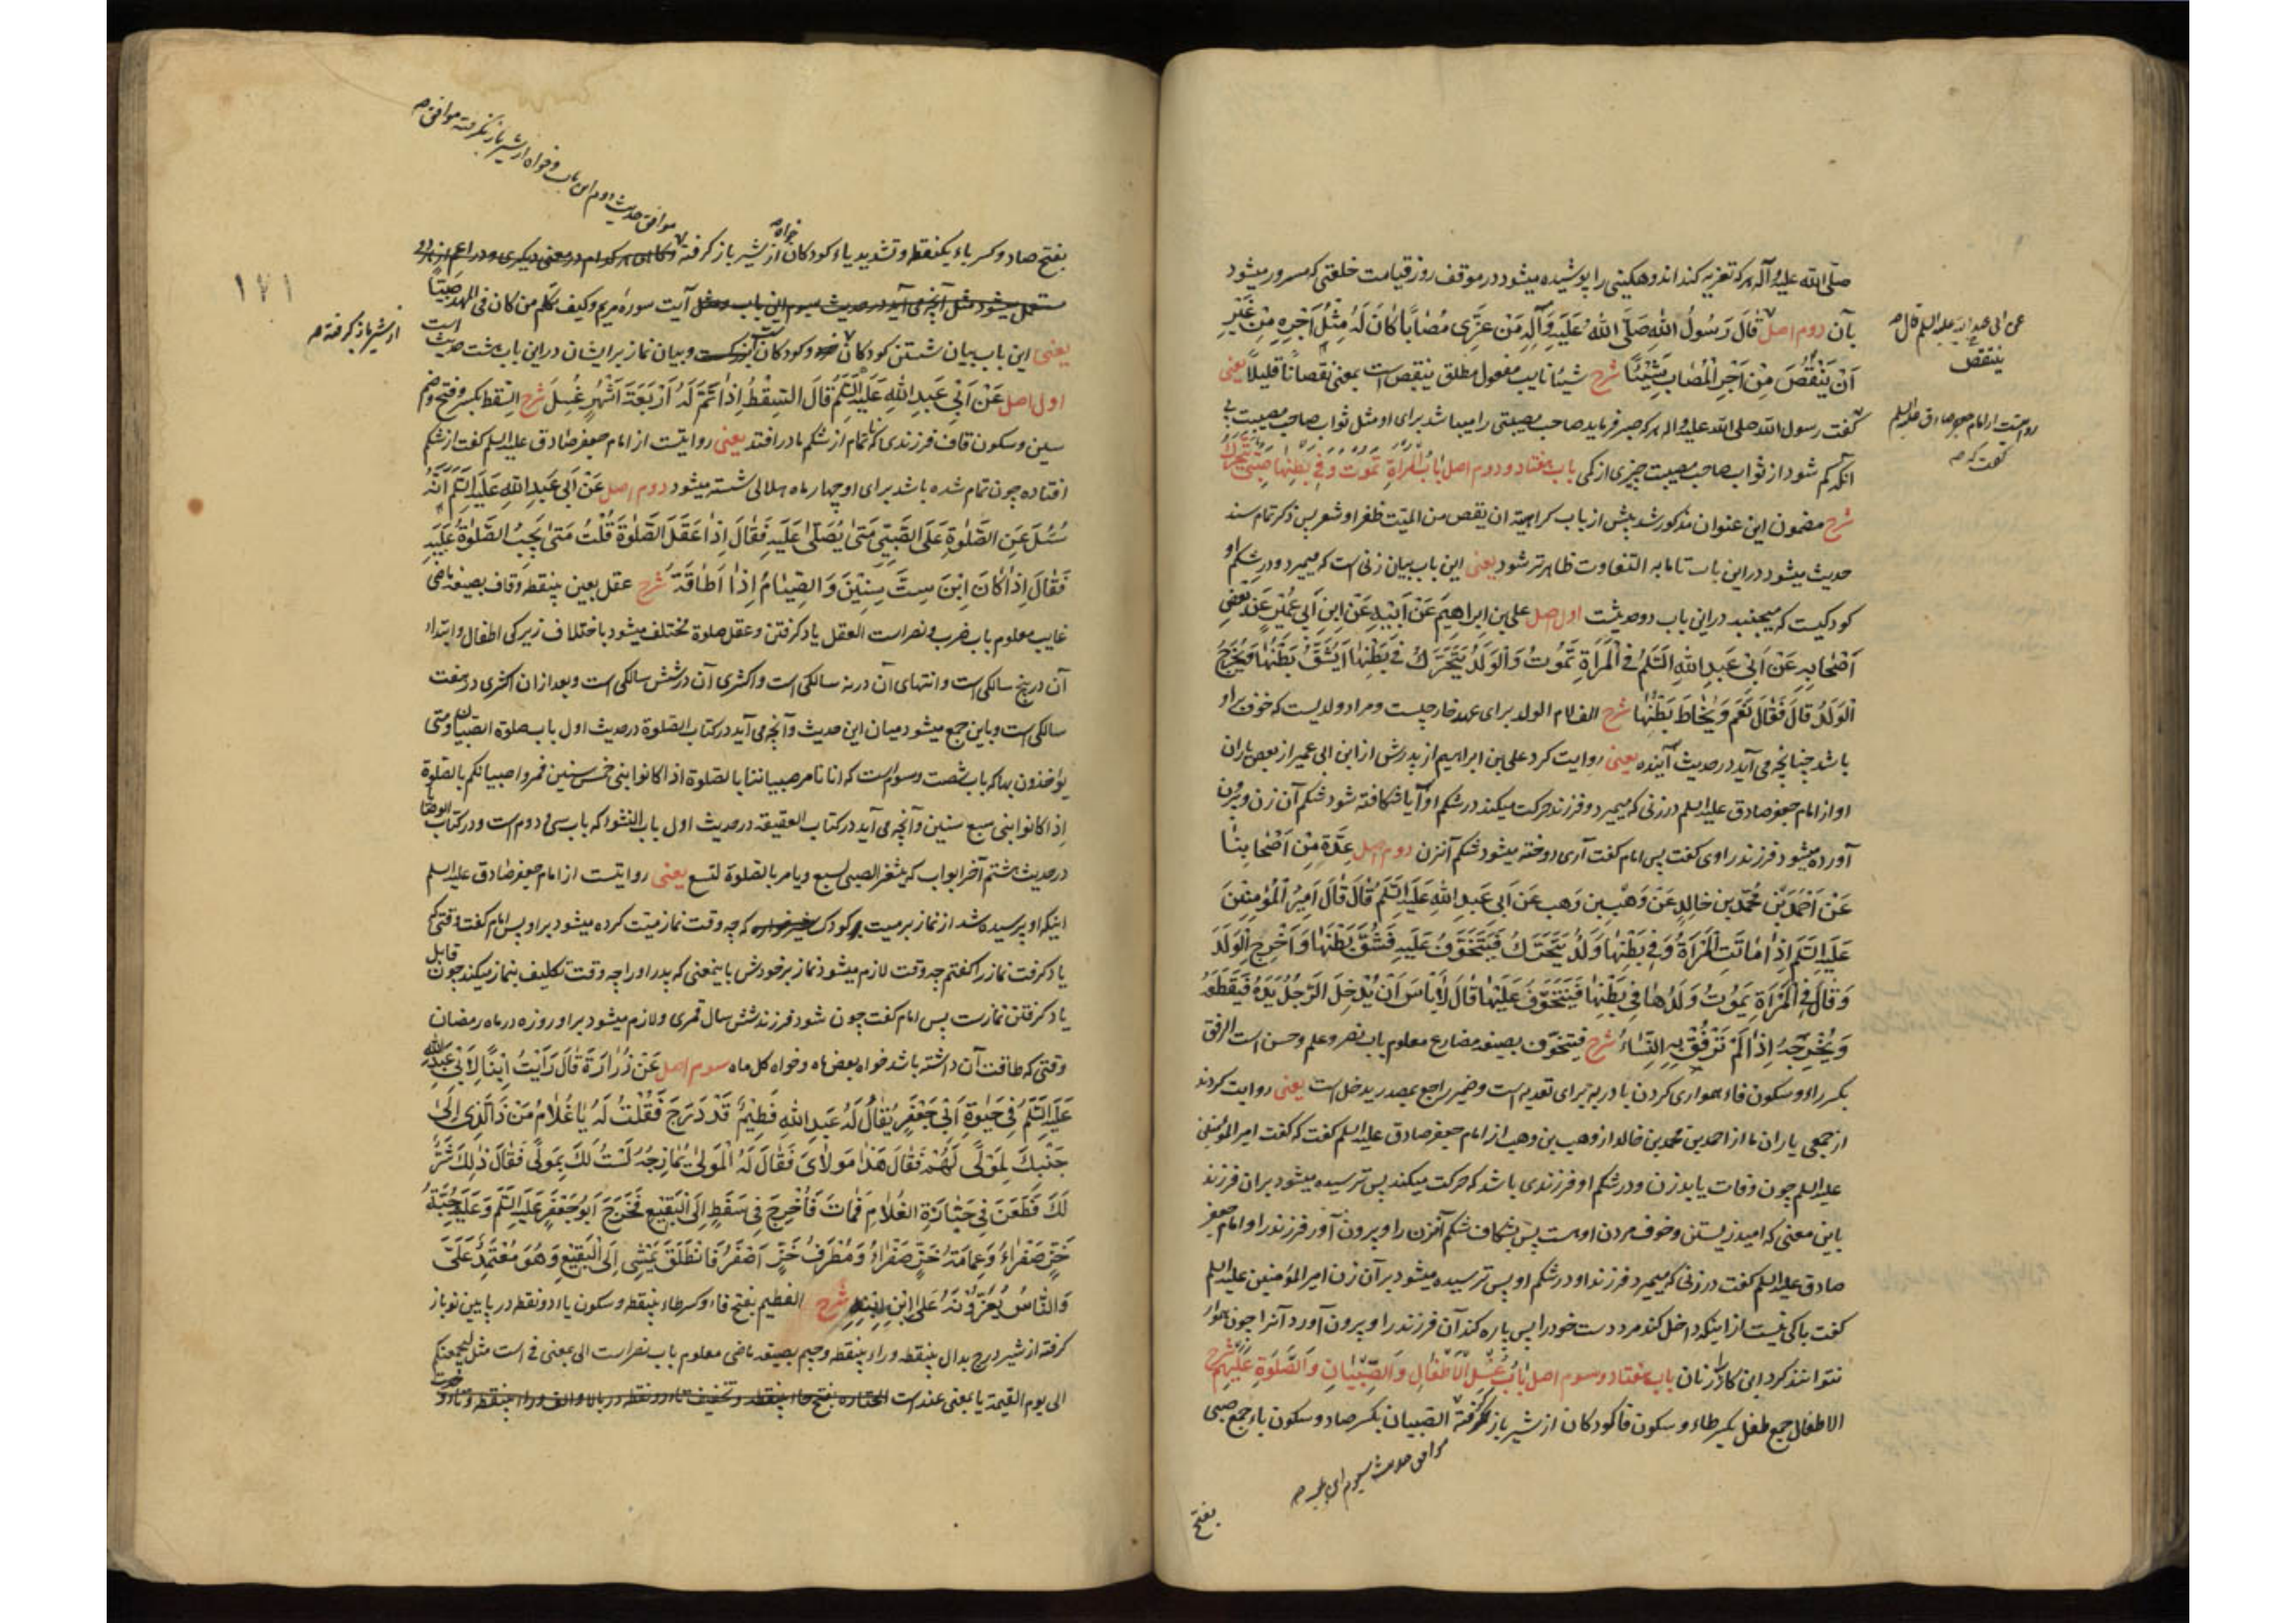 صلّی الله علیه وآله هر که تعزیه کند اندوهگینی را پوشیده میشود در موقف روز قیامت خلعتی که مسرور میشود
بآن دوم اصل قَالَ رَسُولُ اللهِ صَلَّی اللهُ عَلَیْهِ وَآلِهِ مَنْ عَزَّی مُصَاباً کَانَ لَهُ مِثْلُ أَجْرِهِ مِنْ غَیْرِ
عن ابی عبد الله علیه السلم قال
أَنْ یَنْقُصَ مِنْ أَجْرِ الْمُصَابِ شَیْئاً شرح شیئا نایب مفعول مطلق ینقص است بمعنی نقصاناً قلیلاً یعنی
ینتقص
گفت رسول الله صلی الله علیه واله هر که صبر فرماید صاحب مصیبتی را میباشد برای او مثل ثواب صاحب مصیبت بی
روایتست از امام جعفر صادق علیه السلم گفت که
آنکه کم شود از ثواب صاحب مصیبت چیزی از کمی باب هفتاد ودوم اصل بَابُ الْمَرْأَةِ تَمُوتُ وَفِی بَطْنِهَا صَبِیٌّ یَتَحَرَّكُ
شرح مضمون این عنوان مذکور شد پیش از باب کراهیة ان یقص من المیّت ظفر او شعر پس ذکر تمام سند
حدیث میشود در این باب تا ما به التفاوت ظاهرتر شود یعنی این باب بیان زنی است که میمیرد ودر شکم او
کودکیست که میجنبد در این باب دو حدیثست اول اصل علی بن اِبراهِیمَ عَنْ أَبِیهِ عَنِ ابْنِ أَبِی عُمَیْرٍ عَنْ بَعْضِ
أَصْحَابِهِ عَنْ أَبِی عَبْدِ اللهِ السَّلَمُ فِی الْمَرْأَةِ تَمُوتُ وَالْوَلَدُ یَتَحَرَّكُ فِی بَطْنِهَا أَیُشَقُّ بَطْنُهَا وَیُخْرَجُ
الْوَلَدُ قَالَ فَقَالَ نَعَمْ وَیُخَاطُ بَطْنُهَا شرح الف لام الولد برای عهد خارجیست ومراد ولدیست که خوف بر او
باشد چنانچه می آید در حدیث آینده یعنی روایت کرد علی بن ابراهیم از پدرش از ابن ابی عمیر از بعض یاران
او از امام جعفر صادق علیه السلم در زنی که میمیرد وفرزند حرکت میکند در شکم او آیا شکافته شود شکم آن زن وبیرون
آورده میشود فرزند راوی گفت پس امام گفت آری ودوخته میشود شکم آنزن دوم اصل عِدَّةٌ مِنْ أَصْحَابِنَا
عَنْ أَحْمَدَ بْنِ مُحَمَّدِ بْنِ خَالِدٍ عَنْ وَهْبِ بْنِ وَهْبٍ عَنْ أَبِی عَبْدِ اللهِ عَلَیْهِ السَّلَمُ قَالَ قَالَ أَمِیرُ الْمُؤْمِنِینَ
عَلَیْهِ السَّلَم إِذَا مَاتَتِ الْمَرْأَةُ وَفِی بَطْنِهَا وَلَدٌ یَتَحَرَّكُ فَیُتَخَوَّفُ عَلَیْهِ فَشُقَّ بَطْنُهَا وَأُخْرِجَ الْوَلَدُ
وَقَالَ فِی الْمَرْأَةِ یَمُوتُ وَلَدُهَا فِی بَطْنِهَا فَیُتَخَوَّفُ عَلَیْهَا قَالَ لَابَأْسَ أَنْ یُدْخِلَ الرَّجُلُ یَدَهُ فَیُقَطِّعَهُ
وَیُخْرِجَهُ إِذَا لَمْ تَرْفُقْ بِهِ النِّسَاءُ شرح فیتخوّف بصیغه مضارع معلوم باب نصر وعلم وحسن است الرفق
بکسر راء وسکون فاء همواری کردن با در به برای تعدیه است وضمیر راجع بمصدر یدخل است یعنی روایت کردند
از جمعی یاران ما از احمد بن محمد بن خالد از وهب بن وهب از امام جعفر صادق علیه السلم گفت که گفت امیر المؤمنین
علیه السلم چون وفات یابد زن ودر شکم او فرزندی باشد که حرکت میکند پس ترسیده میشود بر آن فرزند
باین معنی که امید زیستن وخوف مردن او هست پس بشکاف شکم آنزن را وبیرون آور فرزند را وامام جعفر
صادق علیه السلم گفت در زنی که میمیرد فرزند او در شکم او پس ترسیده میشود بر آن زن امیر المؤمنین علیه السلم
گفت باکی نیست از اینکه داخل کند مرد دست خود را پس پاره کند آن فرزند را وبیرون آورد آنرا چون هموار
نتوانند کرد این کار را زنان باب هفتاد وسوم اصل بَابُ غُسْلِ الْأَطْفَالِ وَالصِّبْیَانِ وَالصَّلَوةِ عَلَیْهِمْ شرح
الاطفال جمع طفل بکسر طاء وسکون فا کودکان از شیر باز نگرفته الصبیان بکسر صاد وسکون باء جمع صبی
موافق حدیث سیوم این باب
بفتح
۱۷۱
موافق حدیث دوم این باب وخواه از شیر باز نگرفته موافق
بفتح صاد وکسر باء یکنقطه وتشدید یاء کودکان خواه از شیر باز گرفته وگاهی هر کدام در معنی دیگری ودر اعم از هر دو
مستعمل میشود مثل آنچه می آید در حدیث سیوم این باب ومثل آیت سورهٔ مریم وکیف نکلم من کان فی المهد صبیّاً
از شیر باز گرفته
یعنی این باب بیان شستن کودکان خرد وکودکان بزرگست وبیان نماز بر ایشان در این باب هشت حدیث است
اول اصل عَنْ أَبِی عَبْدِ اللهِ عَلَیْهِ السَّلَمُ قَالَ السِّقْطُ إِذَا تَمَّ لَهُ أَرْبَعَةُ أَشْهُرٍ غُسِلَ شرح السقط بکسر وفتح وضم
سین وسکون قاف فرزندی که ناتمام از شکم مادر افتد یعنی روایتست از امام جعفر صادق علیه السلم گفت از شکم
افتاده چون تمام شده باشد برای او چهار ماه هلالی شسته میشود دوم اصل عَنْ أَبِی عَبْدِ اللهِ عَلَیْهِ السَّلَم أَنَّهُ
سُئِلَ عَنِ الصَّلَوةِ عَلَی الصَّبِیِّ مَتَی یُصَلَّی عَلَیْهِ فَقَالَ إِذَا عَقَلَ الصَّلَوةَ قُلْتُ مَتَی یَجِبُ الصَّلَوةُ عَلَیْهِ
فَقَالَ إِذَا کَانَ ابْنَ سِتَّ سِنِینَ وَالصِّیَامُ إِذَا أَطَاقَهُ شرح عقل بعین بینقطه وقاف بصیغه ماضی
غایب معلوم باب ضرب ونصر است العقل یاد گرفتن وعقل صلوة مختلف میشود باختلاف زیرکی اطفال وابتداء
آن در پنج سالگی است وانتهای آن در نه سالگی است واکثری آن در شش سالگی است وبعد از آن اکثری در هفت
سالگی است وباین جمع میشود میان این حدیث وآنچه می آید در کتاب الصلوة در حدیث اول باب صلوة الصبیان ومتی
یؤخذون بها که باب شصت وسوم است که انا نامر صبیاننا بالصلوة اذا کانوا بنی خمس سنین فمروا صبیانکم بالصلوة
إذا کانوا بنی سبع سنین وآنچه می آید در کتاب العقیقة در حدیث اول باب النشوء که باب سی ودوم است ودر کتاب الوصایا
در حدیث هشتم آخر ابواب که یثغر الصبی لسبع ویامر بالصلوة لتسع یعنی روایتست از امام جعفر صادق علیه السلم
اینکه او پرسیده شد از نماز بر میت کودک شیرخواره که چه وقت نماز میّت کرده میشود بر او پس امام گفت وقتی که
یاد گرفت نماز را گفتم چه وقت لازم میشود نماز بر خودش باینمعنی که پدر او را چه وقت تکلیف بنماز میکند چون قابل
یاد گرفتن نمازست پس امام گفت چون شود فرزند شش سال قمری ولازم میشود بر او روزه در ماه رمضان
وقتی که طاقت آن داشته باشد خواه بعض ماه وخواه کل ماه سوم اصل عَنْ زُرَارَةَ قَالَ رَأَیْتُ ابْناً لِأَبِی عَبْدِ اللهِ
عَلَیْهِ السَّلَمُ فِی حَیَوةِ أَبِی جَعْفَرٍ یُقَالُ لَهُ عَبْدُ اللهِ فَطِیمٌ قَدْ دَرَجَ فَقُلْتُ لَهُ یَا غُلَامُ مَنْ ذَا الَّذِی إِلَی
جَنْبِكَ لِمَوْلًی لَهُمْ فَقَالَ هَذَا مَوْلَایَ فَقَالَ لَهُ الْمَوْلَی یُمَازِحُهُ لَسْتُ لَكَ بِمَوْلًی فَقَالَ ذَلِكَ شَرٌّ
لَكَ فَطُعِنَ فِی جَنَازَةِ الْغُلَامِ فَمَاتَ فَأُخْرِجَ فِی سَفَطٍ إِلَی الْبَقِیعِ فَخَرَجَ أَبُو جَعْفَرٍ عَلَیْهِ السَّلَم وَعَلَیْهِ جُبَّةُ
خَزٍّ صَفْرَاءُ وَعِمَامَةُ خَزٍّ صَفْرَاءُ وَمُطْرَفُ خَزٍّ أَصْفَرُ فَانْطَلَقَ یَمْشِی إِلَی الْبَقِیعِ وَهُوَ مُعْتَمِدٌ عَلَیَّ
وَالنَّاسُ یُعَزُّونَهُ عَلَی ابْنِ ابْنِهِ شرح الفطیم بفتح فاء وکسر طاء بینقطه وسکون یاء دو نقطه در پایین نو باز
گرفته از شیر درج بدال بینقطه وراء بینقطه وجیم بصیغه ماضی معلوم باب نصر است الی بمعنی فی است مثل لیجمعنکم
الی یوم القیمة یا بمعنی عند است الجنازه بفتح